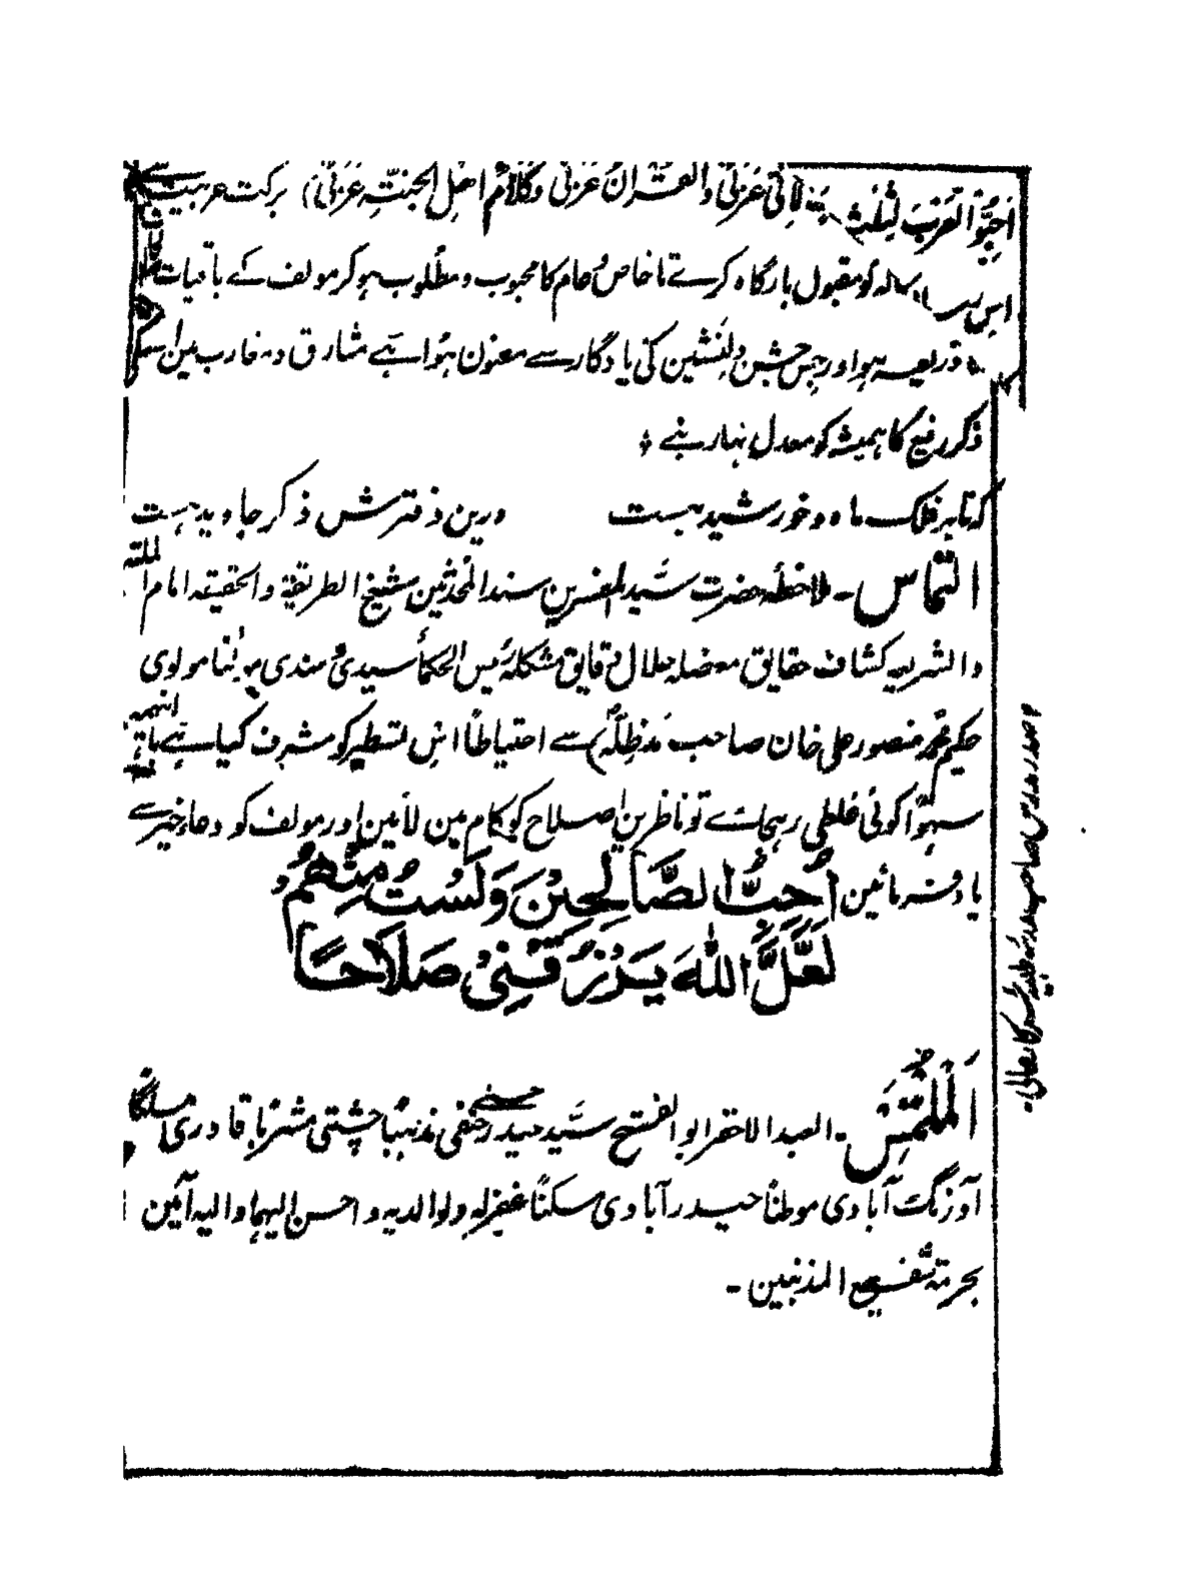 اَحِبُّوا العَرَبَ لِثَلٰثٍ لِاَنِّیْ عَرَبِیٌّ وَالقُرْاٰنُ عَرَبِیٌّ وَکَلَامُ اَھْلِ الْجَنَّۃِ عَرَبِیٌّ) برکت عربیت سے
اس رسالہ کو مقبول بارگاہ کرے تا خاص و عام کا محبوب و مطلوب ہو کر مولف کے باقیات
ذریعہ ہو اور جس جشن دلنشین کی یادگار سے معنون ہُوا ہے مشارق و مغارب میں اسکی
ذکر رفیع کا ہمیشہ کو معدل نہار بنے ۔
کہ تا بر فلک ماہ و خورشید ہست درین دفترش ذکر جاوید ہست
التماس ۔ ملاحظہ حضرت سیّد المفسرین سند المحدثین شیخ الطریقۃ والحقیقہ امام الملتہ
والشریعہ کشاف حقایق معضلہ حلال دقایق مشکلہ رئیس الحکمأ سیدی و سندی مولٰنا مولوی
حکیم محمّد منصور علی خان صاحب مَدَّظِلَّہٗ) سے احتیاطاً اس تسطیر کو مشرف کیا ہے
سہوًا کوئی غلطی رہجائے تو ناظرین اصلاح کو کام مین لأیں اور مولف کو دعاء خیر سے
یاد فرمائین اُحِبُّ الصَّالِحِیْنَ وَلَسْتُ مِنْھُمْ
لَعَلَّ اللّٰهَ یَرْزُقُنِیْ صَلَاحًا
اَلْمُلْتَمِسْ ۔ العبد الاحقر ابو الفتح سیّد حیدر حسنی حنفی مذہبًا چشتی مشربًا قادری مسلکًا
اَورنگ آبادی موطنًا حیدرآبادی سکنًا غفرلہ ولوالدیہ و احسن الیہما والیہ آمین
بحرمۃ شفیع المذنبین ۔